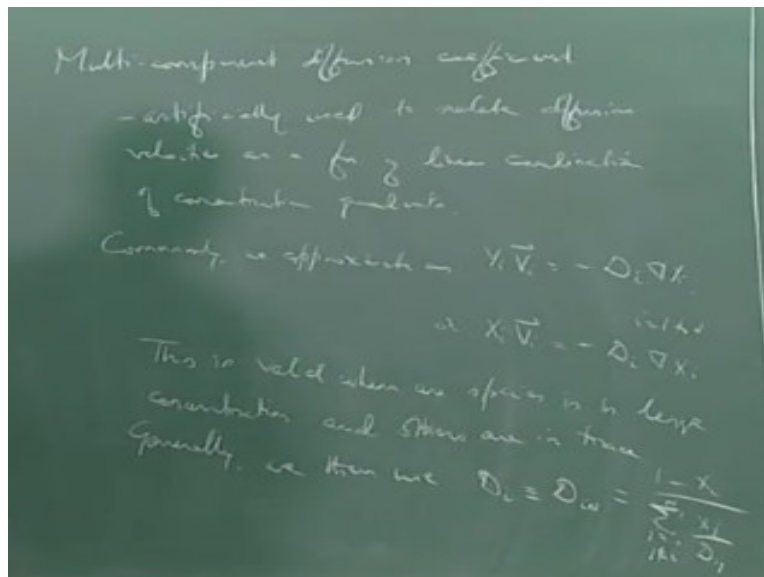 Multi-component diffusion coefficient
- artificially used to relate diffusion
velocities as a fn. of linear combination
of concentration gradients.
Commonly, we approximate as Yᵢ V⃗ᵢ = - Dᵢ ∇Yᵢ
or Xᵢ V⃗ᵢ = - Dᵢ ∇Xᵢ
This is valid when one species is in large
concentration and others are in trace
Generally, we then use Dᵢ ≡ Dᵢₘ = (1 - Xᵢ) / Σ Xⱼ/Dᵢⱼ